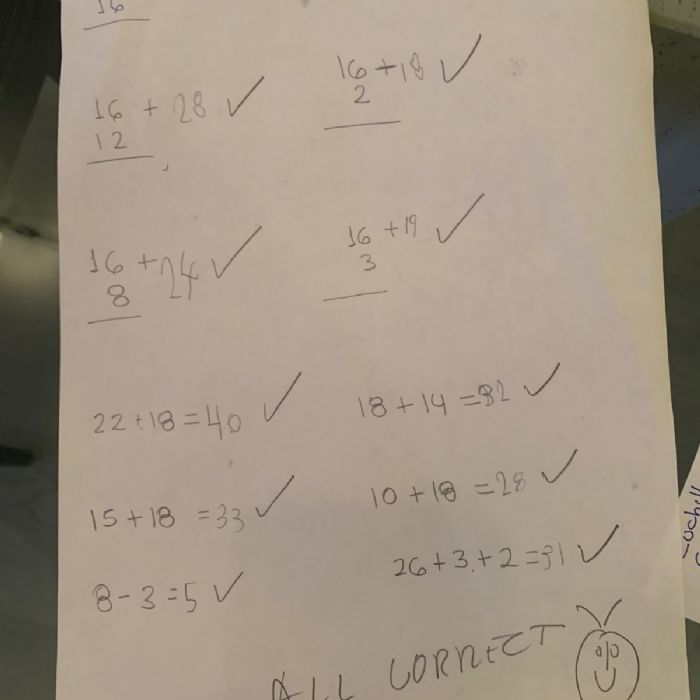 16
16 + 28 ✓ 16 + 18 ✓
12 2
16 + 24 ✓ 16 + 19 ✓
8 3
22 + 18 = 40 ✓ 18 + 14 = 32 ✓
15 + 18 = 33 ✓ 10 + 18 = 28 ✓
8 - 3 = 5 ✓ 26 + 3 + 2 = 31 ✓
ALL CORRECT